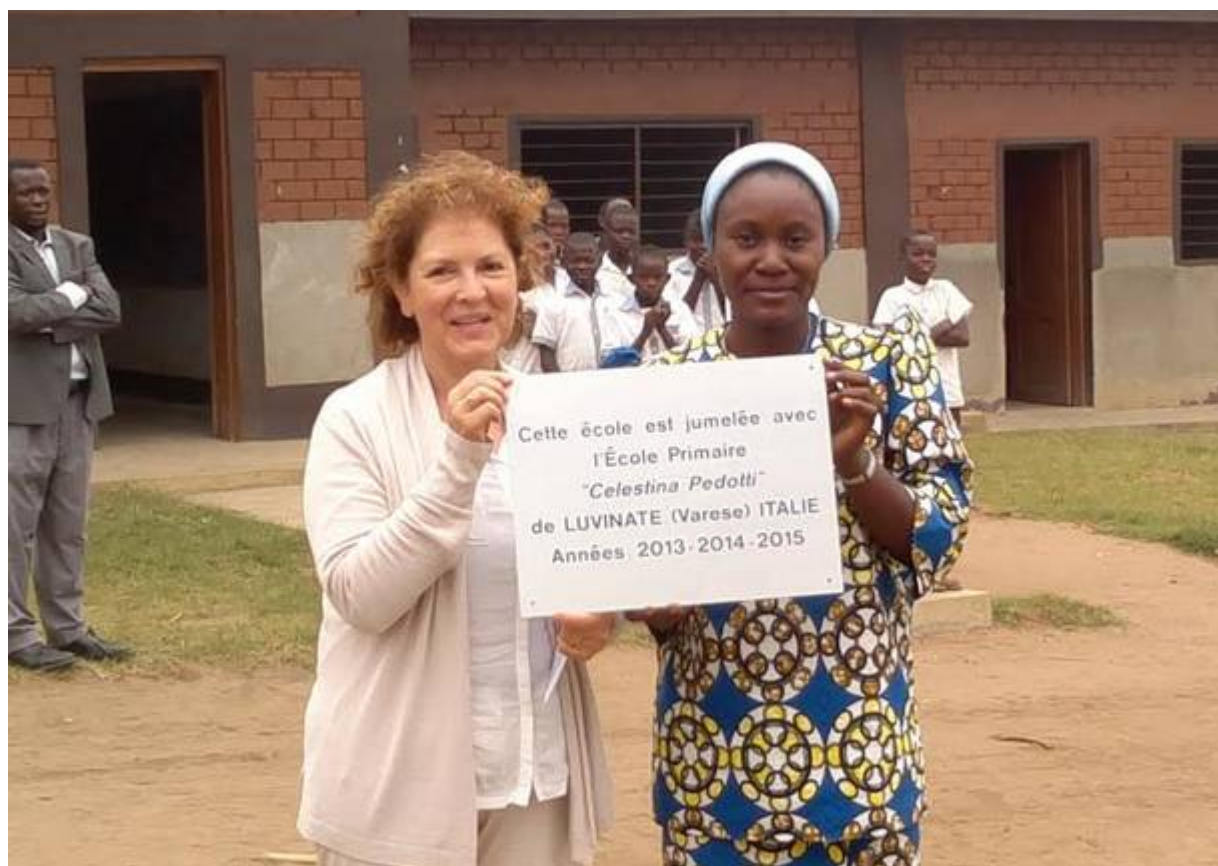 Cette école est jumelée avec
l'École Primaire
"Celestina Pedotti"
de LUVINATE (Varese) ITALIE
Années 2013-2014-2015